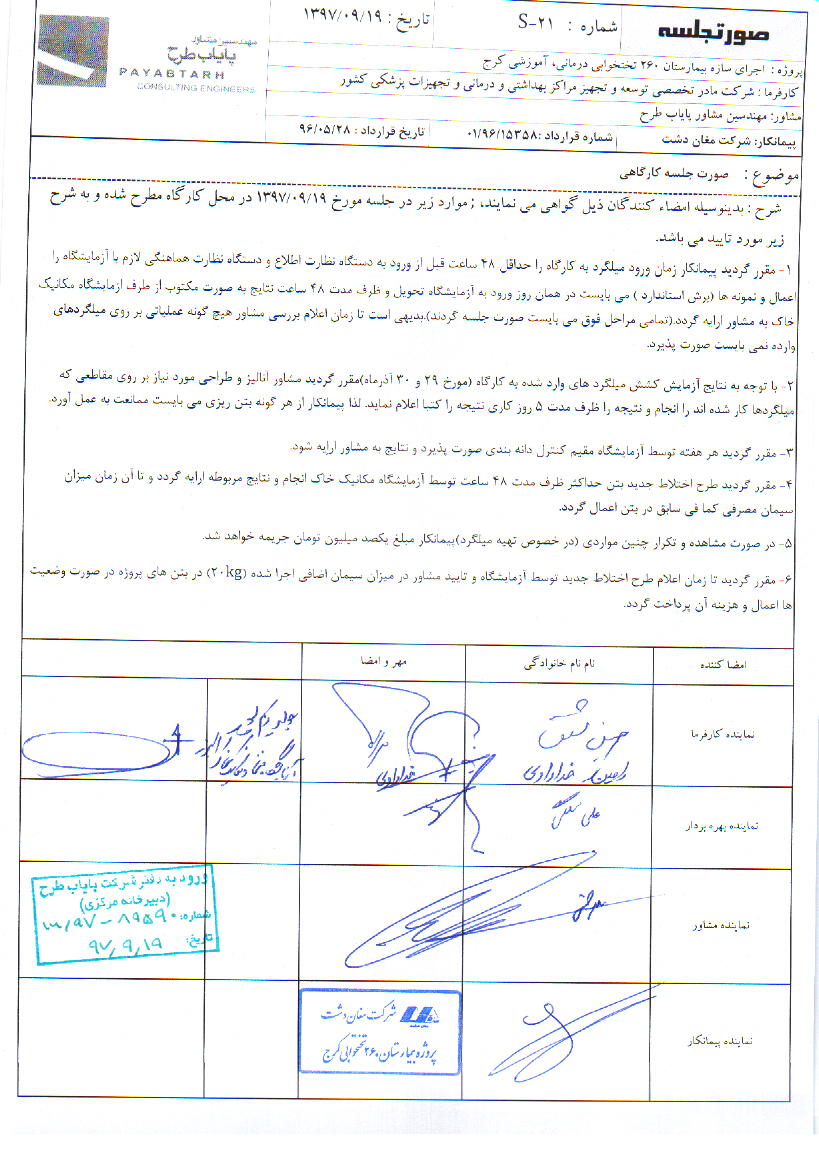 صورتجلسه
شماره : S-۲۱
تاریخ : ۱۳۹۷/۰۹/۱۹
مهندسین مشاور
پایاب طرح
PAYABTARH
CONSULTING ENGINEERS
پروژه : اجرای سازه بیمارستان ۲۶۰ تختخوابی درمانی، آموزشی کرج
کارفرما : شرکت مادر تخصصی توسعه و تجهیز مراکز بهداشتی و درمانی و تجهیزات پزشکی کشور
مشاور: مهندسین مشاور پایاب طرح
پیمانکار: شرکت مغان دشت
شماره قرارداد :۰۱/۹۶/۱۵۳۵۸
تاریخ قرارداد : ۹۶/۰۵/۲۸
موضوع : صورت جلسه کارگاهی
شرح : بدینوسیله امضاء کنندگان ذیل گواهی می نمایند، ; موارد زیر در جلسه مورخ ۱۳۹۷/۰۹/۱۹ در محل کارگاه مطرح شده و به شرح
زیر مورد تایید می باشد.
۱- مقرر گردید پیمانکار زمان ورود میلگرد به کارگاه را حداقل ۴۸ ساعت قبل از ورود به دستگاه نظارت اطلاع و دستگاه نظارت هماهنگی لازم با آزمایشگاه را
اعمال و نمونه ها (برش استاندارد ) می بایست در همان روز ورود به آزمایشگاه تحویل و ظرف مدت ۴۸ ساعت نتایج به صورت مکتوب از طرف ازمایشگاه مکانیک
خاک به مشاور ارایه گردد.(تمامی مراحل فوق می بایست صورت جلسه گردند).بدیهی است تا زمان اعلام بررسی مشاور هیچ گونه عملیاتی بر روی میلگردهای
وارده نمی بایست صورت پذیرد.
۲- با توجه به نتایج آزمایش کشش میلگرد های وارد شده به کارگاه (مورخ ۲۹ و ۳۰ آذرماه)مقرر گردید مشاور انالیز و طراحی مورد نیاز بر روی مقاطعی که
میلگردها کار شده اند را انجام و نتیجه را ظرف مدت ۵ روز کاری نتیجه را کتبا اعلام نماید. لذا پیمانکار از هر گونه بتن ریزی می بایست ممانعت به عمل آورد.
۳- مقرر گردید هر هفته توسط آزمایشگاه مقیم کنترل دانه بندی صورت پذیرد و نتایج به مشاور ارایه شود.
۴- مقرر گردید طرح اختلاط جدید بتن حداکثر ظرف مدت ۴۸ ساعت توسط آزمایشگاه مکانیک خاک انجام و نتایج مربوطه ارایه گردد و تا آن زمان میزان
سیمان مصرفی کما فی سابق در بتن اعمال گردد.
۵- در صورت مشاهده و تکرار چنین مواردی (در خصوص تهیه میلگرد)پیمانکار مبلغ یکصد میلیون تومان جریمه خواهد شد.
۶- مقرر گردید تا زمان اعلام طرح اختلاط جدید توسط آزمایشگاه و تایید مشاور در میزان سیمان اضافی اجرا شده (۲۰kg) در بتن های پروژه در صورت وضعیت
ها اعمال و هزینه آن پرداخت گردد.
امضا کننده
نام نام خانوادگی
مهر و امضا
نماینده کارفرما
رامین خدادادی
خدادادی
نماینده بهره بردار
علی
نماینده مشاور
ورود به دفتر شرکت پایاب طرح
(دبیرخانه مرکزی)
شماره:
تاریخ: ۹۷,۹,۱۹
نماینده پیمانکار
شرکت مغان دشت
پروژه بیمارستان ۲۶۰ تختخوابی کرج